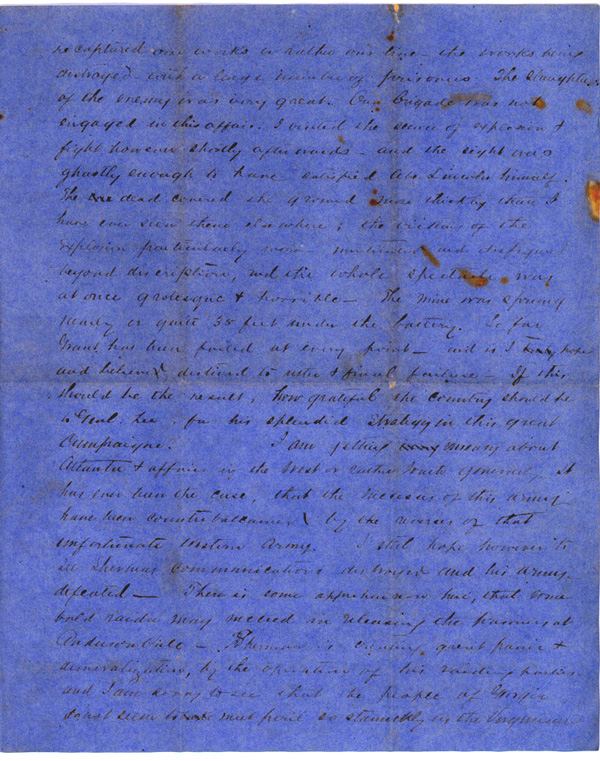 recaptured our works or rather our line – the works being
destroyed with a large number of prisoners. The slaughter
of the enemy was very great. Our brigade was not
engaged in this affair. I visited the scene of explosion &
fight however shortly afterwards – and the sight was
ghastly enough to have satisfied Abe Lincoln himself.
The dead covered the ground more thickly than I
have ever seen them elsewhere; the victims of the
explosion particularly were mutilated and disfigured
beyond discription, and the whole spectacle was
at once grotesque & horrible – The mine was sprung
nearly or quite 30 feet under the battery. So far
Grant has been foiled at every point – and is I hope
and believe destined to utter & final failure – If this
should be the result, how grateful the country should be
to Genl. Lee, for his splendid strategy in this great
Campaigne. I am getting uneasy about
Atlanta & affairs in the West or rather South generally. It
has ever been the case, that the successes of this army
have been counterbalanced by the reverses of that
unfortunate western Army. I still hope however to
see Shermans communications destroyed and his army
defeated – There is some apprehension here, that some
bold raider may succeed in releasing the prisoners at
Andersonville – Sherman is creating great panic &
demoralization, by the operation of his raiding parties
and I am sorry to see that the people of Georgia
dont seem to meet peril so staunchly as the Virginians